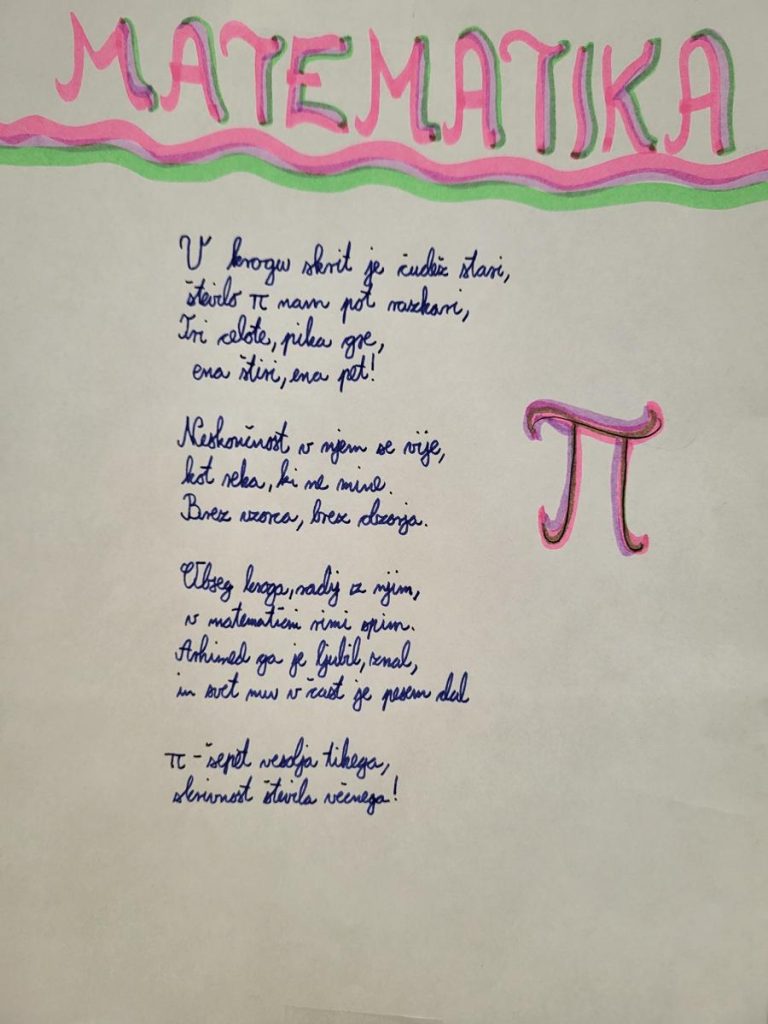 MATEMATIKA
V krogu skrit je čudež stari,
število π nam pot razkari,
Tri celote, pika gre,
ena štiri, ena pet!
Neskončnost v njem se vije,
kot reka, ki ne mine.
Brez vzorca, brez dzorja.
π
Obseg kroga, radij z njim,
v matematični rimi spim.
Arhimed ga je ljubil, znal,
in svet mu v čast je pesem dal
π - šepet vesolja tihega,
skrivnost števila večnega!